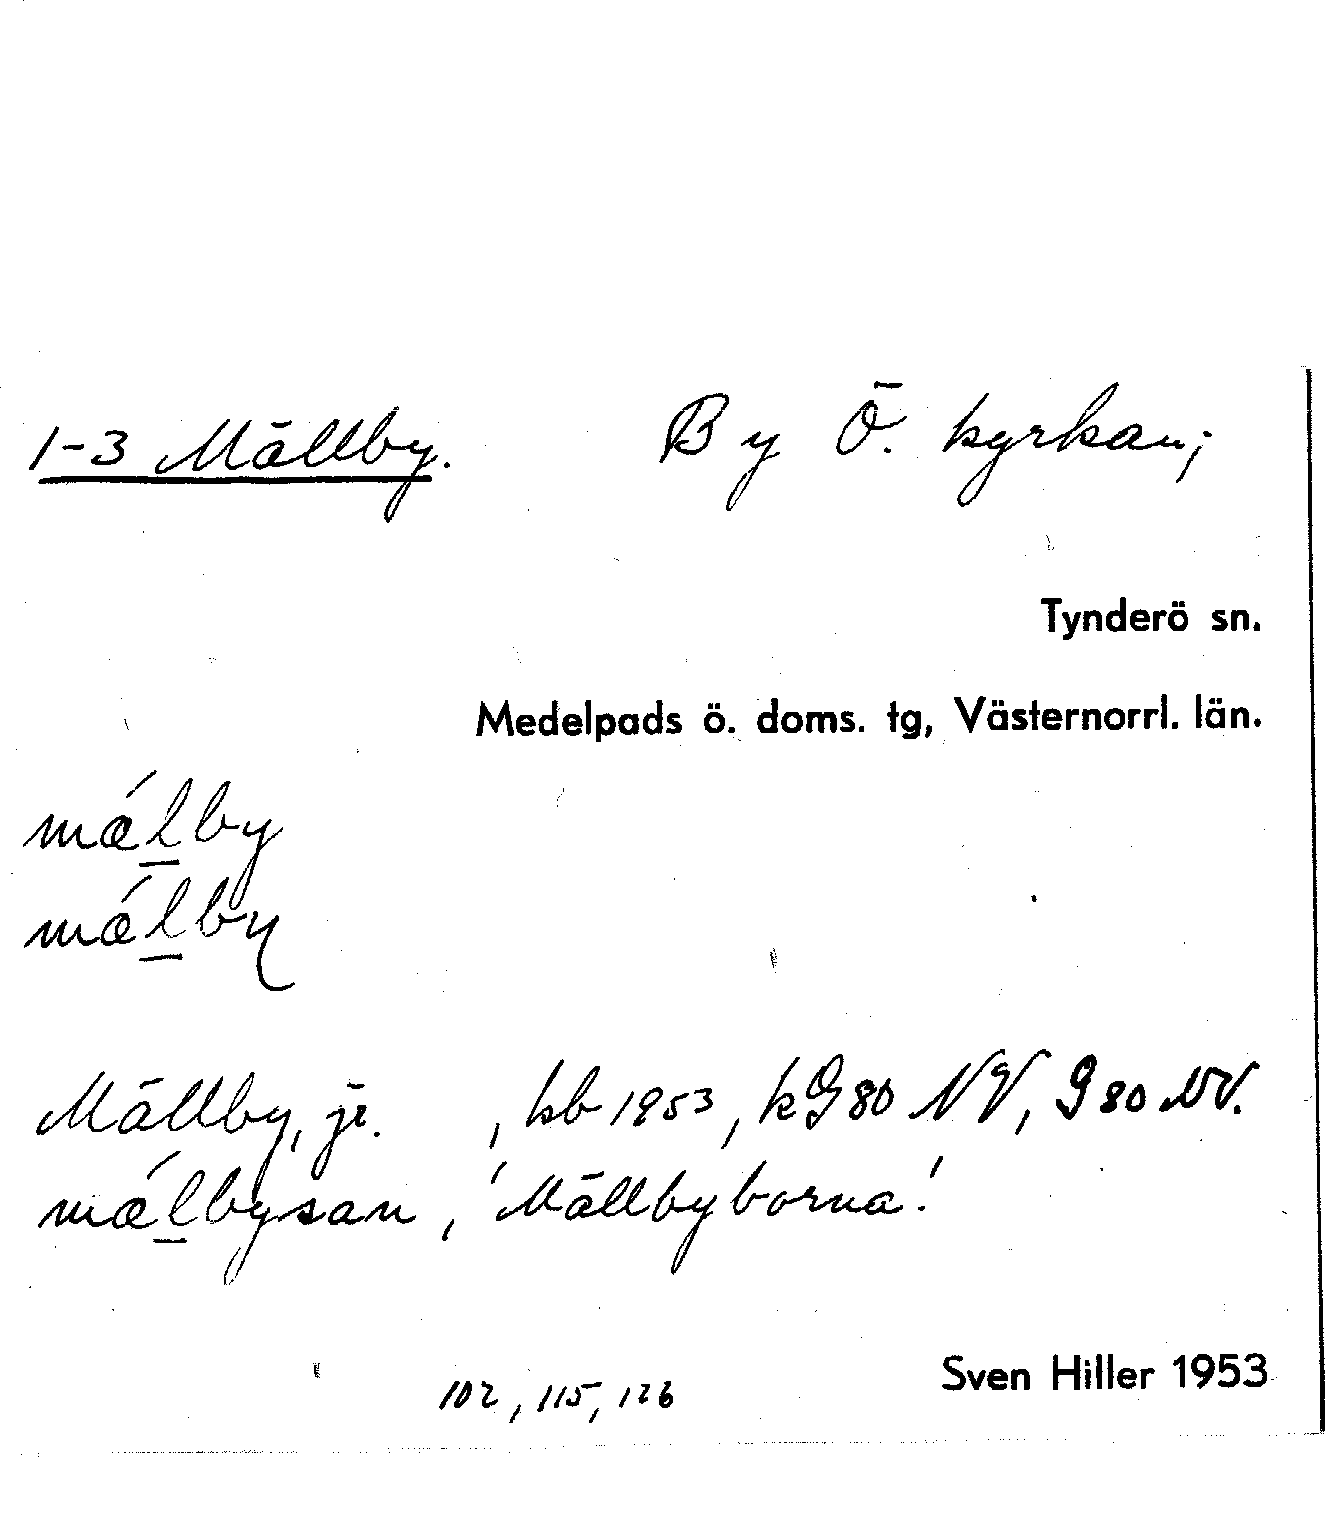 1-3 Mällby. By Ö. kyrkan;
Tynderö sn.
Medelpads ö. doms. tg, Västernorrl. län.
mǽl̲by
mǽl̲by
Mällby, je. , kb 1953, kG80 NV, G80 NV.
mǽl̲bysan, 'Mällbyborna'.
Sven Hiller 1953
102, 115, 126